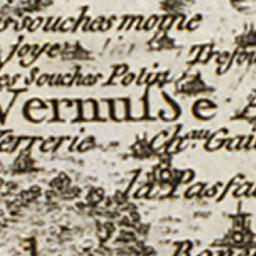 s souchas moine
joye
Tresou
es Souchas Polin
Vernusse
Verrerie
Ch.au Gai
la Pasfa